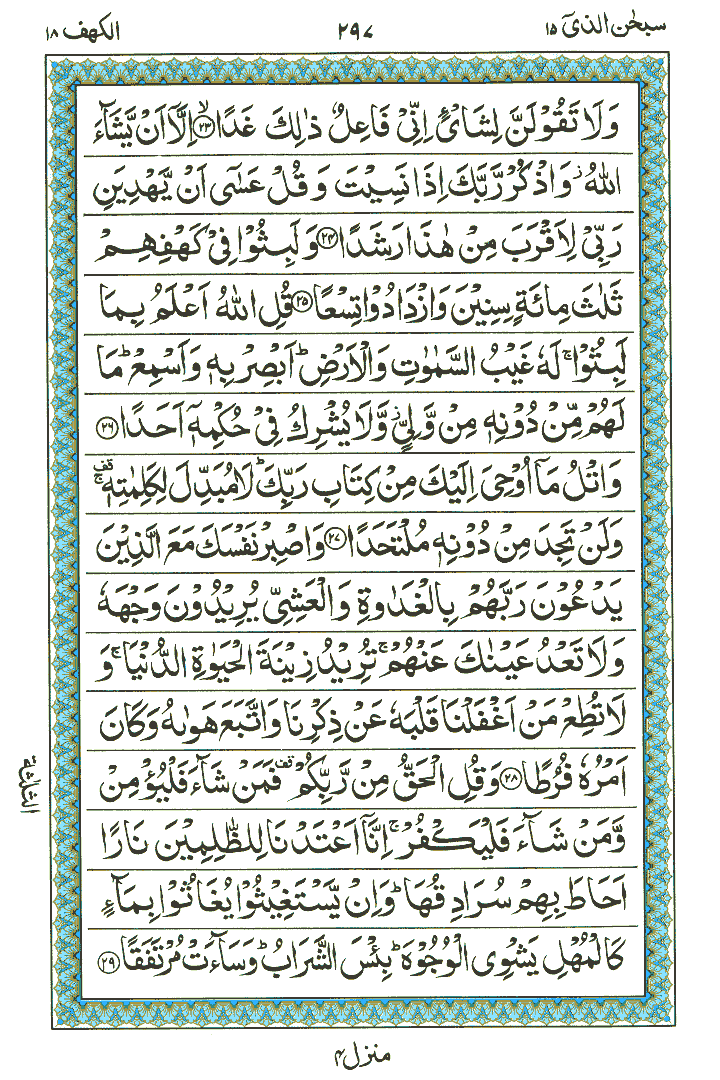 سبحٰن الذیٓ ۱۵
۲۹۷
الکهف ۱۸
وَلَا تَقُوْلَنَّ لِشَایْءٍ اِنِّیْ فَاعِلٌ ذٰلِكَ غَدًا ۙ‏﴿۲۳﴾ اِلَّاۤ اَنْ یَّشَآءَ
اللّٰهُ ؗ وَاذْكُرْ رَّبَّكَ اِذَا نَسِیْتَ وَ قُلْ عَسٰۤی اَنْ یَّهْدِیَنِ
رَبِّیْ لِاَقْرَبَ مِنْ هٰذَا رَشَدًا ﴿۲۴﴾ وَ لَبِثُوْا فِیْ كَهْفِهِمْ
ثَلٰثَ مِائَةٍ سِنِیْنَ وَازْدَادُوْا تِسْعًا ﴿۲۵﴾ قُلِ اللّٰهُ اَعْلَمُ بِمَا
لَبِثُوْا ۚ لَهٗ غَیْبُ السَّمٰوٰتِ وَالْاَرْضِ ؕ اَبْصِرْ بِهٖ وَاَسْمِعْ ؕ مَا
لَهُمْ مِّنْ دُوْنِهٖ مِنْ وَّلِیٍّ ؗ وَّلَا یُشْرِكُ فِیْ حُكْمِهٖۤ اَحَدًا ﴿۲۶﴾
وَاتْلُ مَاۤ اُوْحِیَ اِلَیْكَ مِنْ كِتَابِ رَبِّكَ ؕ لَا مُبَدِّلَ لِكَلِمٰتِهٖ ۚ قف
وَلَنْ تَجِدَ مِنْ دُوْنِهٖ مُلْتَحَدًا ﴿۲۷﴾ وَاصْبِرْ نَفْسَكَ مَعَ الَّذِیْنَ
یَدْعُوْنَ رَبَّهُمْ بِالْغَدٰوةِ وَالْعَشِیِّ یُرِیْدُوْنَ وَجْهَهٗ
وَلَا تَعْدُ عَیْنٰكَ عَنْهُمْ ۚ تُرِیْدُ زِیْنَةَ الْحَیٰوةِ الدُّنْیَا ۚ وَ
لَا تُطِعْ مَنْ اَغْفَلْنَا قَلْبَهٗ عَنْ ذِكْرِنَا وَاتَّبَعَ هَوٰىهُ وَكَانَ
اَمْرُهٗ فُرُطًا ﴿۲۸﴾ وَقُلِ الْحَقُّ مِنْ رَّبِّكُمْ قف فَمَنْ شَآءَ فَلْیُؤْمِنْ
وَّمَنْ شَآءَ فَلْیَكْفُرْ ۚ اِنَّاۤ اَعْتَدْنَا لِلظّٰلِمِیْنَ نَارًا
اَحَاطَ بِهِمْ سُرَادِقُهَا ؕ وَاِنْ یَّسْتَغِیْثُوْا یُغَاثُوْا بِمَآءٍ
كَالْمُهْلِ یَشْوِی الْوُجُوْهَ ؕ بِئْسَ الشَّرَابُ ؕ وَسَآءَتْ مُرْتَفَقًا ﴿۲۹﴾
الثلثة
منزل ۴